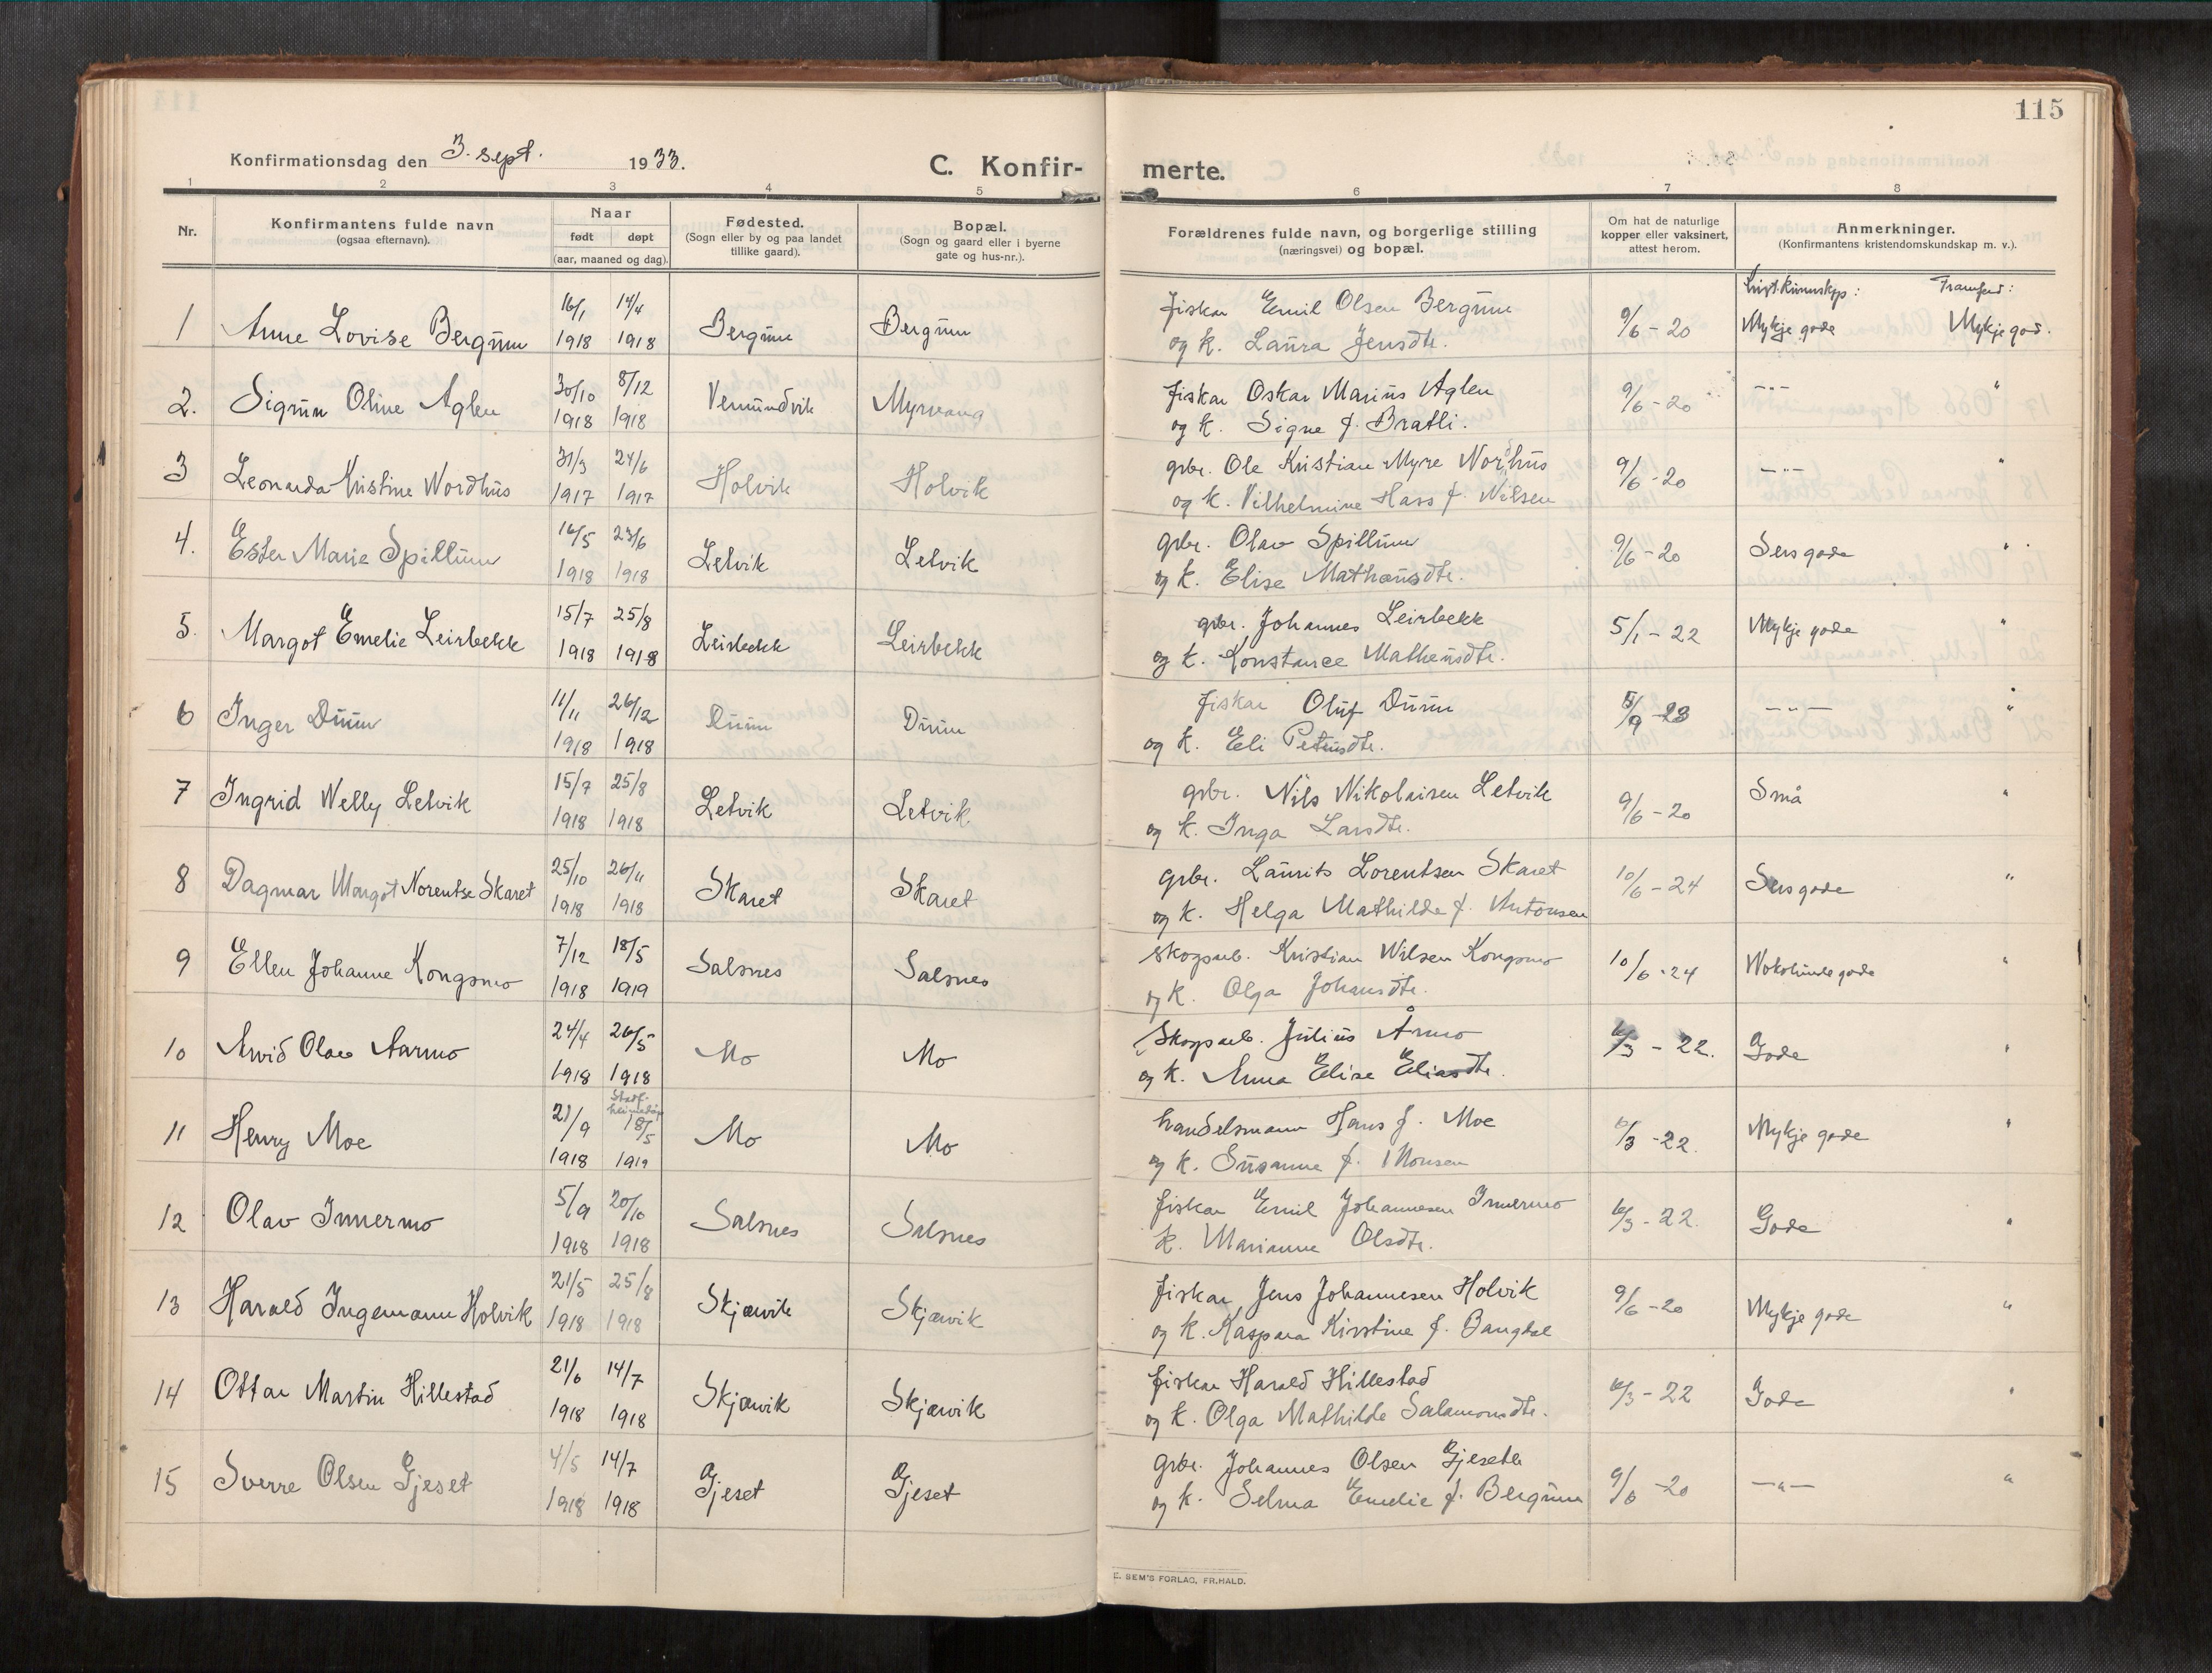 115
Konfirmationsdag den 3. sept. 1933.
C. Konfir-
merte.
1 2 3 4 5 6 7 8
Nr.
Konfirmantens fulde navn
(ogsaa efternavn).
Naar
født døpt
(aar, maaned og dag).
Fødested.
(Sogn eller by og paa landet
tillike gaard).
Bopæl.
(Sogn og gaard eller i byerne
gate og hus-nr.).
Forældrenes fulde navn, og borgerlige stilling
(næringsvei) og bopæl.
Om hat de naturlige
kopper eller vaksinert,
attest herom.
Anmerkninger.
(Konfirmantens kristendomskundskap m. v.).
Krist.kunnskap: Framferd:
1 Anne Lovise Bergüm 16/1 1918 14/4 1918 Bergüm Bergüm
fiskar Emil Olsen Bergüm
og k. Laŭra Jensdtr.
9/6 - 20 Mykje gode Mykje god.
2. Sigrŭn Oline Aglen 30/10 1918 8/12 1918 Vemŭndvik Myrvang
fiskar Oskar Mariŭs Aglen
og k. Signe f. Bratli.
9/6 - 20 —"— "
3 Leonarda Kristine Nordhŭs 31/3 1917 24/6 1917 Holvik Holvik
grbr. Ole Kristian Myre Nordhŭs
og k. Vilhelmine Hass f. Nilsen
9/6 - 20 —"— "
4. Ester Marie Spillŭm 16/5 1918 23/6 1918 Letvik Letvik
grbr. Olav Spillŭm
og k. Elise Mathæŭsdtr.
9/6 - 20 Sers gode "
5. Margot Emelie Leirbekk 15/7 1918 25/8 1918 Leirbekk Leirbekk
grbr. Johannes Leirbekk
og k. Konstanse Matheŭsdtr.
5/1 - 22 Mykje gode "
6 Inger Dŭŭn 11/11 1918 26/12 1918 Dŭŭn Dŭŭn
fiskar Olŭf Dŭŭn
og k. Eli Petersdtr.
5/9 - 23 —"— "
7 Ingrid Nelly Letvik 15/7 1918 25/8 1918 Letvik Letvik
grbr. Nils Nikolaisen Letvik
og k. Inga Larsdtr.
9/6 - 20 Små "
8 Dagmar Margot Norentse Skaret 25/10 1918 26/11 1918 Skaret Skaret
grbr. Laŭrits Lorentsen Skaret
og k. Helga Mathilde f. Antonsen
10/6 - 24 Sers gode "
9 Ellen Johanne Kongsmo 7/12 1918 18/5 1919 Salsnes Salsnes
skogsarb. Kristian Nilsen Kongsmo
og k. Olga Johansdtr.
10/6 - 24 Nokolŭnde gode "
10 Arvid Olav Aarmo 24/4 1918 26/5 1918 Mo Mo
Skogsarb. Jŭliŭs Årmo
og k. Anna Elise Eliasdtr.
6/3 - 22. Gode "
11 Henry Moe 21/9 1918 Stadf. heimedåp 18/5 1919 Mo Mo
handelsmann Hans J. Moe
og k. Sŭsanne f. Monsen
6/3 - 22. Mykje gode "
12 Olav Innermo 5/9 1918 20/10 1918 Salsnes Salsnes
fiskar Emil Johannesen Innermo
k. Marianne Olsdtr.
6/3 - 22. Gode "
13 Harald Ingemann Holvik 21/5 1918 25/8 1918 Skjærvik Skjærvik
fiskar Jens Johannesen Holvik
og k. Kaspara Kirstine f. Bangdal
9/6 - 20 Mykje gode "
14 Ottar Martin Hillestad 21/6 1918 14/7 1918 Skjærvik Skjærvik
fiskar Harald Hillestad
og k. Olga Mathilde Salamonsdtr.
6/3 - 22 Gode "
15 Sverre Olsen Gjeset 4/5 1918 14/7 1918 Gjeset Gjeset
grbr. Johannes Olsen Gjeseth
og k. Selma Emelie f. Bergŭm
9/6 - 20 —"— "
E. SEM'S FORLAG, FR.HALD.